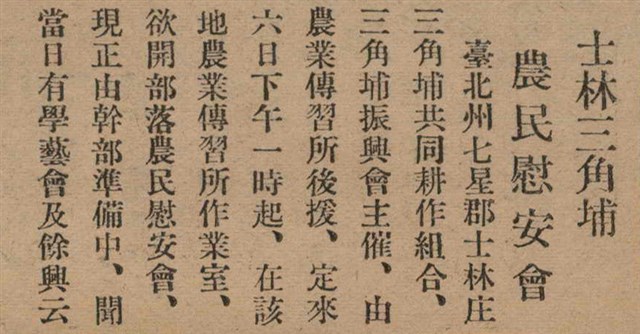 士林三角埔
農民慰安會
臺北州七星郡士林庄
三角埔共同耕作組合、
三角埔振興會主催、由
農業傳習所後援、定來
六日下午一時起、在該
地農業傳習所作業室、
欲開部落農民慰安會、
現正由幹部準備中、聞
當日有學藝會及餘興云